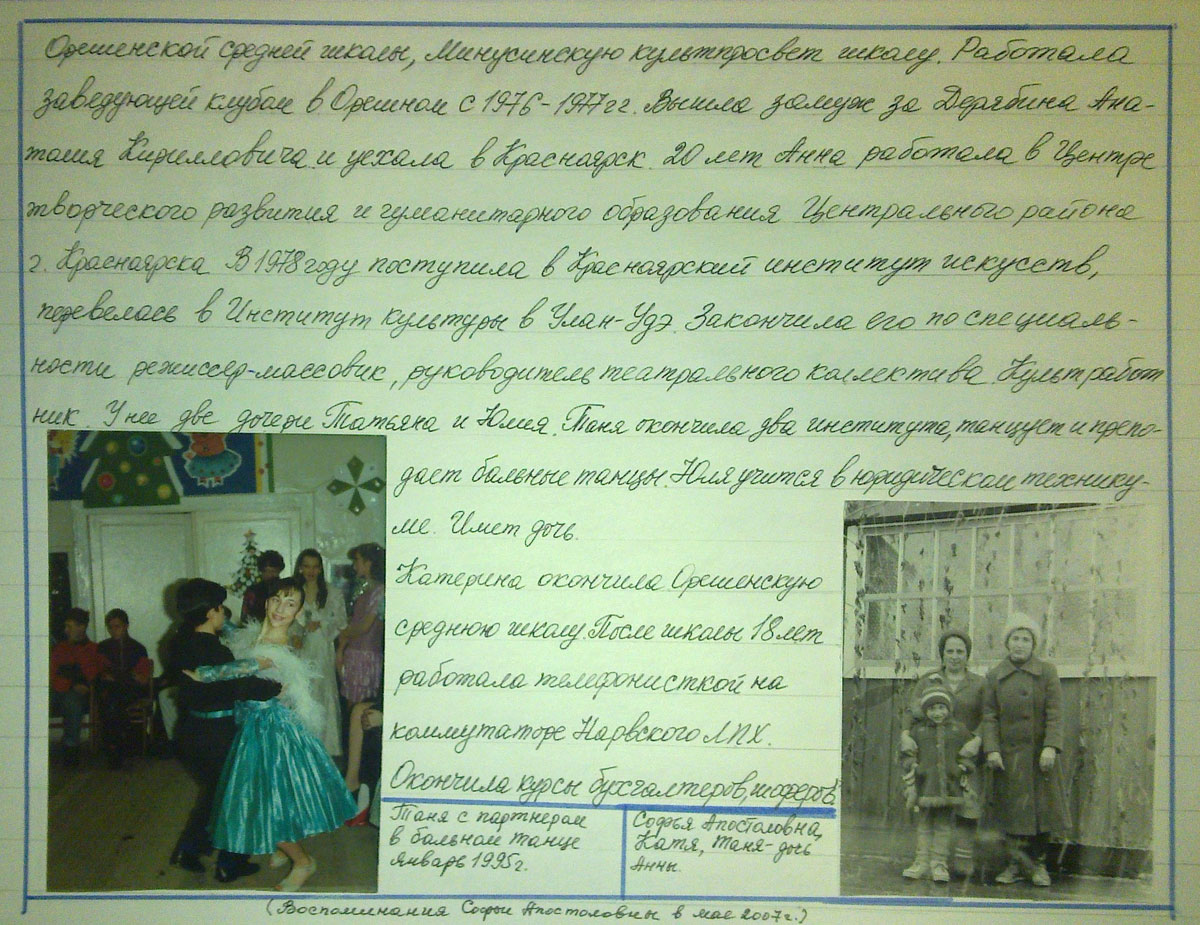 Орешенской средней школы, Минусинскую культпросвет школу. Работала
заведующей клубом в Орешном с 1976-1977гг. Вышла замуж за Дерябина Ана-
толия Кирилловича и уехала в Красноярск. 20 лет Анна работала в Центре
творческого развития и гуманитарного образования Центрального района
г. Красноярска В 1978 году поступила в Красноярский институт искусств,
перевелась в Институт культуры в Улан-Удэ. Закончила его по специаль-
ности режиссер-массовик, руководитель театрального коллектива. Культработ
ник. У нее две дочери Татьяна и Юлия. Таня окончила два института, танцует и препо-
дает бальные танцы. Юля учится в юридическом технику-
ме. Имет дочь.
Катерина окончила Орешенскую
среднюю школу. После школы 18 лет
работала телефонисткой на
коммутаторе Нарвского ЛПХ.
Окончила курсы бухгалтеров, шоферов.
Таня с партнером
в бальном танце
январь 1995г.
Софья Апостоловна,
Катя, Таня-дочь
Анны.
(Воспоминания Софьи Апостоловны в мае 2007г.)